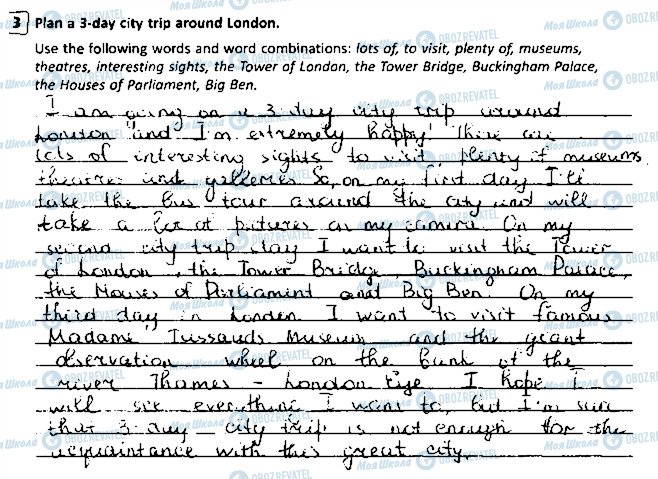 3 Plan a 3-day city trip around London.
Use the following words and word combinations: lots of, to visit, plenty of, museums,
theatres, interesting sights, the Tower of London, the Tower Bridge, Buckingham Palace,
the Houses of Parliament, Big Ben.
I am going on a 3-day city trip around
London and I'm extremely happy! There are
lots of interesting sights to visit, plenty of museums,
theatres and galleries. So, on my first day I'll
take the bus tour around the city and will
take a lot of pictures on my camera. On my
second city trip day I want to visit the Tower
of London, the Tower Bridge, Buckingham Palace,
the Houses of Parliament and Big Ben. On my
third day in London I want to visit famous
Madame Tussauds Museum and the giant
observation wheel on the bank of the
river Thames - London Eye. I hope I
will see everything I want to, but I'm sure
that 3-day city trip is not enough for the
acquaintance with this great city.
Моя Школа OBOZREVATEL